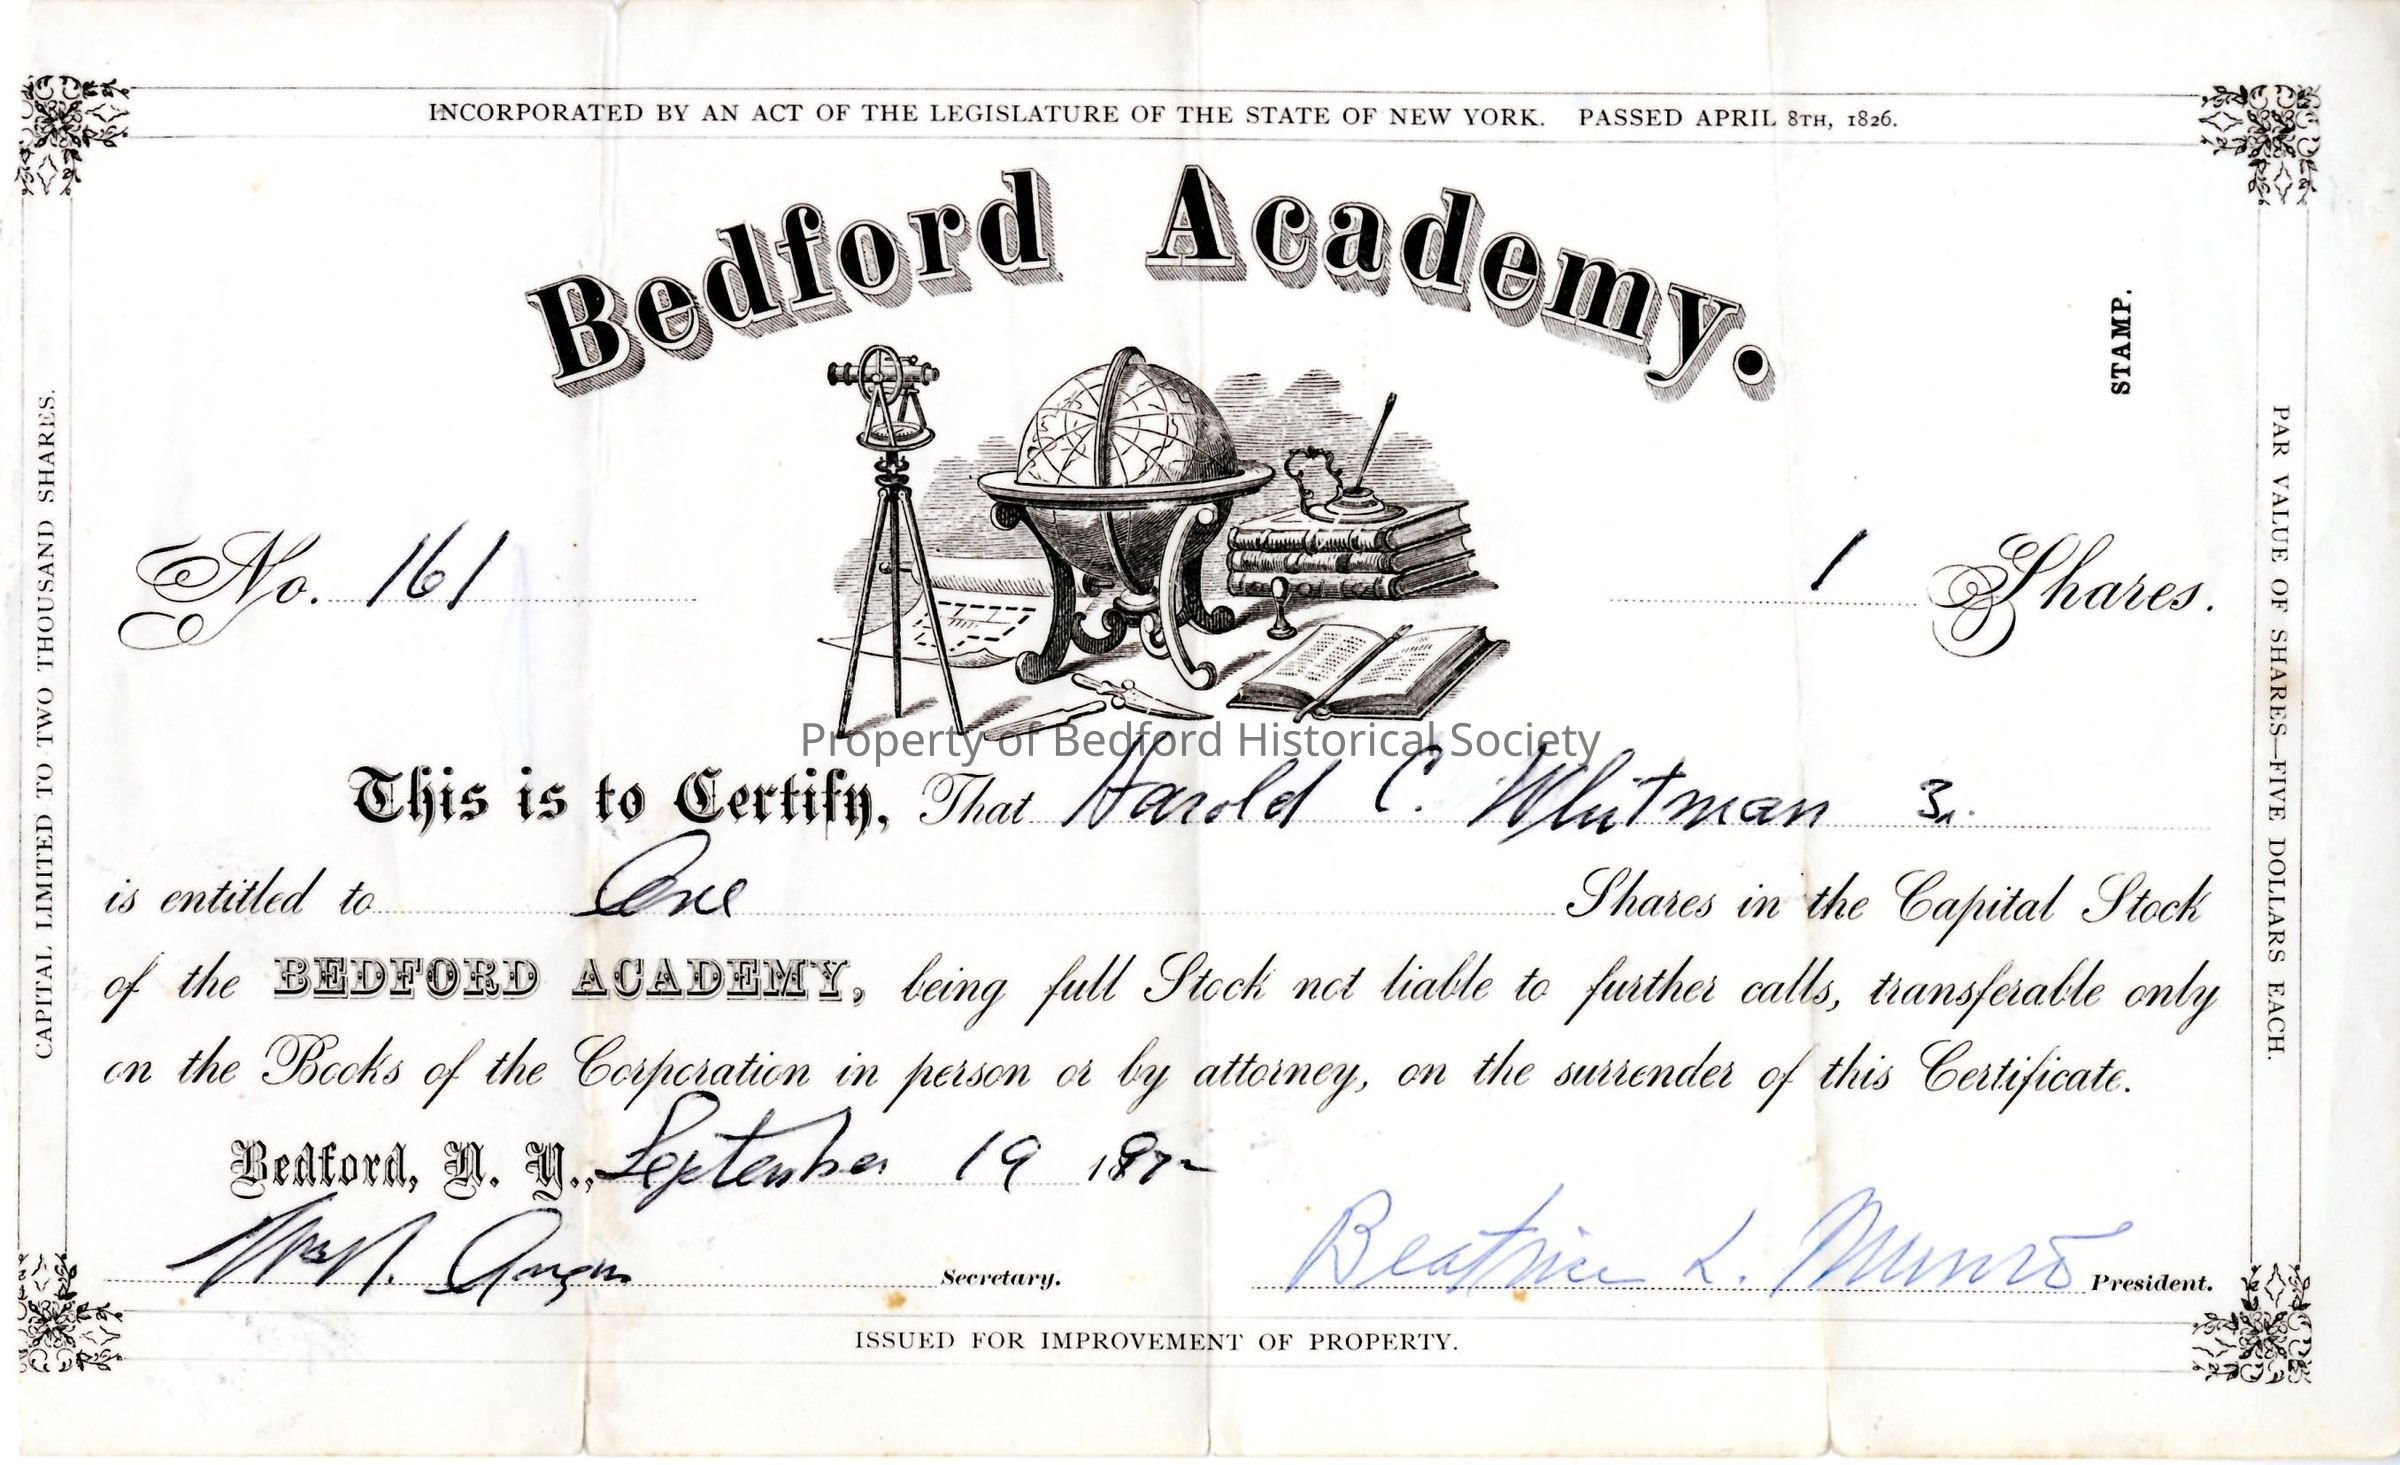 INCORPORATED BY AN ACT OF THE LEGISLATURE OF THE STATE OF NEW YORK. PASSED APRIL 8TH, 1826.
Bedford Academy.
STAMP.
CAPITAL LIMITED TO TWO THOUSAND SHARES.
PAR VALUE OF SHARES—FIVE DOLLARS EACH.
No. 161
1 Shares.
Property of Bedford Historical Society
This is to Certify, That Harold C. Whitman
is entitled to One Shares in the Capital Stock
of the BEDFORD ACADEMY, being full Stock not liable to further calls, transferable only
on the Books of the Corporation in person or by attorney, on the surrender of this Certificate.
Bedford, N. Y., September 19
Secretary.
Beatrice L. Munro President.
ISSUED FOR IMPROVEMENT OF PROPERTY.